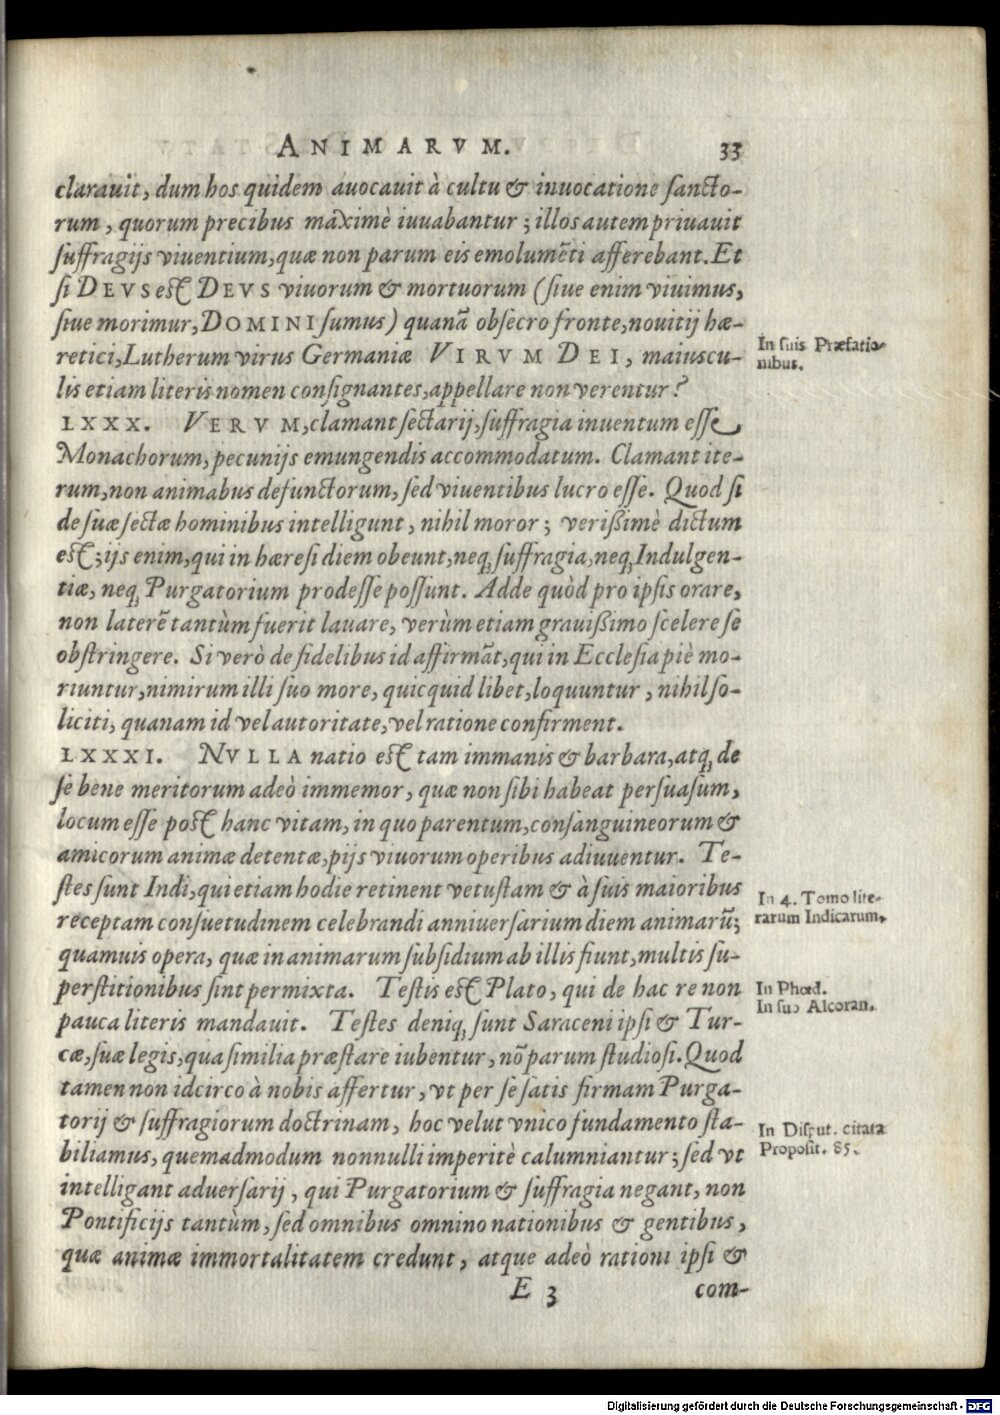 ANIMARVM. 33
clarauit, dum hos quidem auocauit à cultu & inuocatione sancto-
rum, quorum precibus maximè iuuabantur; illos autem priuauit
suffragijs viuentium, quæ non parum eis emolumēti afferebant. Et
si DEVS est DEVS viuorum & mortuorum (siue enim viuimus,
siue morimur, DOMINI sumus) quanā obsecro fronte, nouitij hæ-
retici, Lutherum virus Germaniæ VIRVM DEI, maiuscu-
lis etiam literis nomen consignantes, appellare non verentur?
In suis Præfatio-
nibus.
LXXX. VERVM, clamant sectarij, suffragia inuentum esse
Monachorum, pecunijs emungendis accommodatum. Clamant ite-
rum, non animabus defunctorum, sed viuentibus lucro esse. Quod si
de suæ sectæ hominibus intelligunt, nihil moror; verißimè dictum
est; ijs enim, qui in hæresi diem obeunt, neq; suffragia, neq; Indulgen-
tiæ, neq; Purgatorium prodesse possunt. Adde quòd pro ipsis orare,
non laterē tantùm fuerit lauare, verùm etiam grauißimo scelere se
obstringere. Si verò de fidelibus id affirmāt, qui in Ecclesia piè mo-
riuntur, nimirum illi suo more, quicquid libet, loquuntur, nihil so-
liciti, quanam id vel autoritate, vel ratione confirment.
LXXXI. NVLLA natio est tam immanis & barbara, atq; de
se bene meritorum adeò immemor, quæ non sibi habeat persuasum,
locum esse post hanc vitam, in quo parentum, consanguineorum &
amicorum animæ detentæ, pijs viuorum operibus adiuuentur. Te-
stes sunt Indi, qui etiam hodie retinent vetustam & à suis maioribus
receptam consuetudinem celebrandi anniuersarium diem animarū;
quamuis opera, quæ in animarum subsidium ab illis fiunt, multis su-
perstitionibus sint permixta. Testis est Plato, qui de hac re non
pauca literis mandauit. Testes deniq; sunt Saraceni ipsi & Tur-
cæ, suæ legis, qua similia præstare iubentur, nō parum studiosi. Quod
tamen non idcirco à nobis affertur, vt per se satis firmam Purga-
torij & suffragiorum doctrinam, hoc velut vnico fundamento sta-
biliamus, quemadmodum nonnulli imperitè calumniantur; sed vt
intelligant aduersarij, qui Purgatorium & suffragia negant, non
Pontificijs tantùm, sed omnibus omnino nationibus & gentibus,
quæ animæ immortalitatem credunt, atque adeò rationi ipsi &
In 4. Tomo lite-
rarum Indicarum.
In Phæd.
In suo Alcoran.
In Disput. citata
Proposit. 85.
E 3 com-
Digitalisierung gefördert durch die Deutsche Forschungsgemeinschaft - DFG